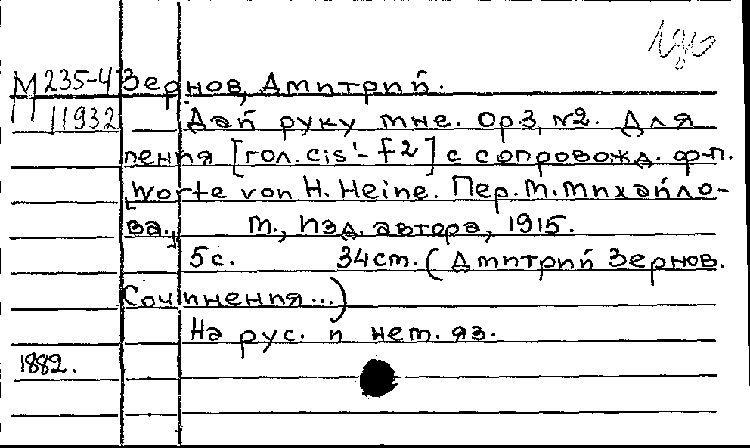 М 235-4 Зернов, Дмитрий.
11932 Дай руку мне. Op3, №2. Для
пения [гол. cis¹- f2] с сопровожд. ф-п.
[Worte von H. Heine. Пер. М. Михайло-
ва.] М., Изд. автора, 1915.
5с. 34см. (Дмитрий Зернов.
Сочинения...)
На рус. и нем. яз.
1882.